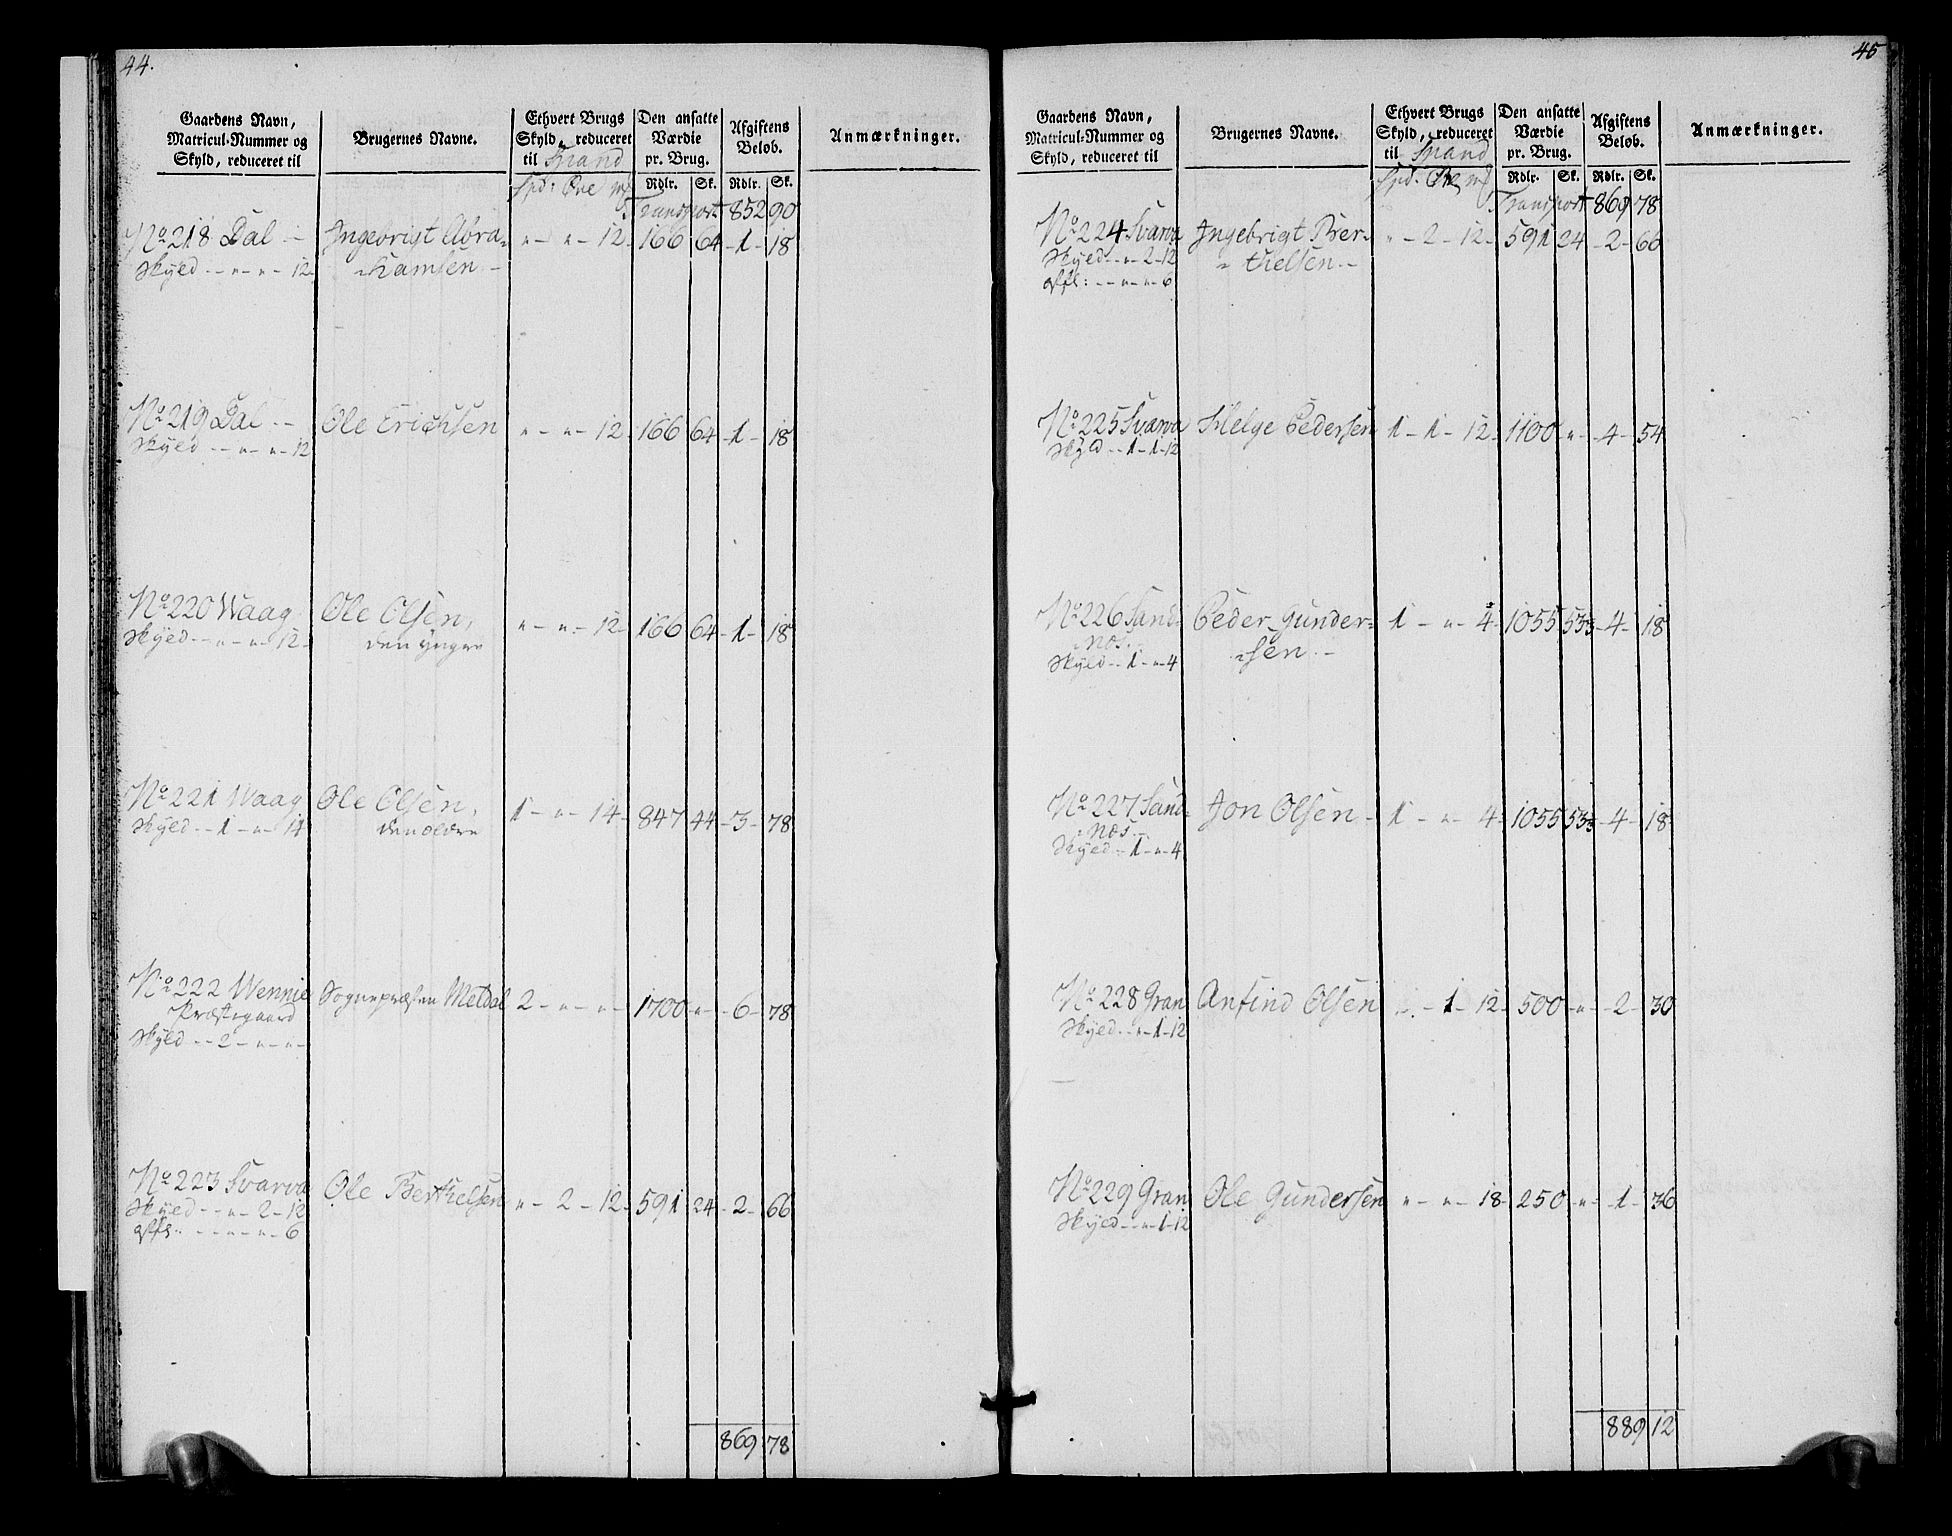 44.
Gaardens Navn,
Matricul-Nummer og
Skyld, reduceret til
Brugernes Navne.
Ethvert Brugs
Skyld, reduceret
til Spand
Spd: Øre mk
Den ansatte
Værdie
pr. Brug.
Rdlr. Sk.
Afgiftens
Beløb.
Rdlr. Sk.
Anmærkninger.
Transport 852 90
No 218 Dal -- Ingebrigt Abra= " - " - 12 - 166 64 - 1 - 18
Skyld -- " - " - 12 =hamsen -
No 219 Dal -- Ole Erichsen " - " - 12 - 166 64 - 1 - 18
Skyld -- " - " - 12
No 220 Waag Ole Olsen, " - " - 12 - 166 64 - 1 - 18
Skyld -- " - " - 12 - den Yngre
No 221 Waag Ole Olsen, 1 - " - 14 - 847 44 - 3 - 78
Skyld -- 1 - " - 14 den ældre
No 222 Wennie Sognepræsten Meldal 2 - " - " - 1700 " - 6 - 78
Præstegaard
Skyld -- 2 - " - " -
No 223 Svarva Ole Berthelsen " - 2 - 12 - 591 24 - 2 - 66
Skyld -- " - 2 - 12
Afl: -- " - " - 6
869 78
45
Gaardens Navn,
Matricul-Nummer og
Skyld, reduceret til
Brugernes Navne.
Ethvert Brugs
Skyld, reduceret
til Spand
Spd. Øre mk
Den ansatte
Værdie
pr. Brug.
Rdlr. Sk.
Afgiftens
Beløb.
Rdlr. Sk.
Anmærkninger.
Transport 869 78
No 224 Svarva Ingebrigt Ber- " - 2 - 12 - 591 24 - 2 - 66
Skyld -- " - 2 - 12 =thelsen --
Afl: -- " - " - 6
No 225 Svarva Helge Pedersen 1 - 1 - 12 - 1100 " - 4 - 54
Skyld -- 1 - 1 - 12
No 226 Sand= Peder Gunder= 1 - " - 4 - 1055 53 - 4 - 18
=næs. =sen. -
Skyld -- 1 - " - 4
No 227 Sand= Jon Olsen - 1 - " - 4 - 1055 53 - 4 - 18
=næs. -
Skyld -- 1 - " - 4
No 228 Gran Anfind Olsen " - 1 - 12 - 500 " - 2 - 30
Skyld -- " - 1 - 12
No 229 Gran Ole Gundersen " - " - 18 - 250 " - 1 - 36
Skyld -- " - 1 - 12
889 12